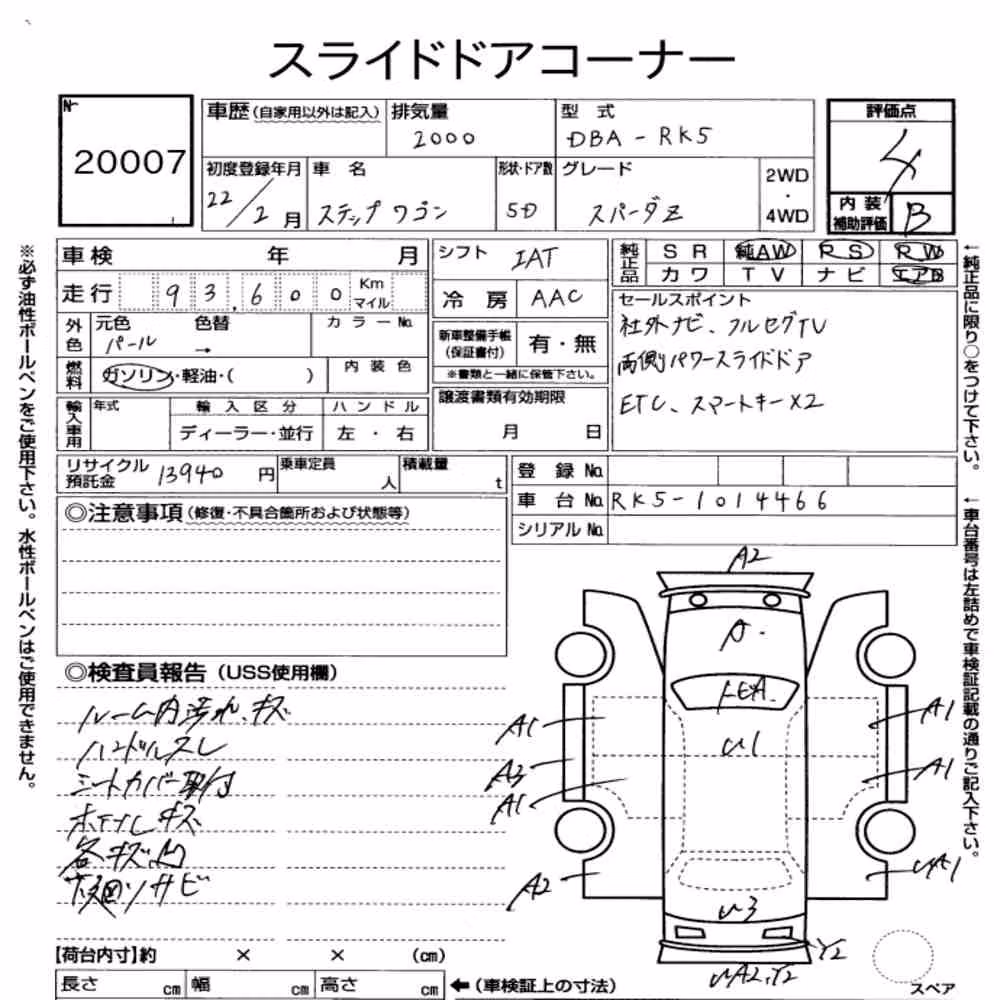 スライドドアコーナー
№ 20007
車歴(自家用以外は記入) 排気量 2000 型式 DBA-RK5
初度登録年月 22/2月 車名 ステップワゴン 形状・ドア数 5D グレード スパーダZ 2WD・4WD
評価点 4
内装補助評価 B
車検 年 月
走行 93,600 Km マイル
シフト IAT
冷房 AAC
純正品 SR 純AW RS RW
カワ TV ナビ エアB
外色 元色 パール 色替 → カラーNo.
燃料 ガソリン・軽油・( ) 内装色
新車整備手帳(保証書付) 有・無
※書類と一緒に保管下さい。
セールスポイント
社外ナビ、フルセグTV
両側パワースライドドア
ETC、スマートキーX2
輸入車用 年式 輸入区分 ハンドル
ディーラー・並行 左・右
譲渡書類有効期限
月 日
リサイクル預託金 13940円 乗車定員 人 積載量 t
登録No.
車台No. RK5-1014466
シリアルNo.
◎注意事項(修復・不具合箇所および状態等)
◎検査員報告(USS使用欄)
ルーム内汚れ、キズ
ハンドルスレ
シートカバー取付
各キズ
サビ
A2
A
U1
A1
A1
A3
A1
A1
A2
UA1
U3
Y2
UA2,Y2
【荷台内寸】約 × × (cm)
長さ cm 幅 cm 高さ cm ←(車検証上の寸法)
スペア
※必ず油性ボールペンをご使用下さい。水性ボールペンはご使用できません。
←純正品に限り○をつけて下さい。
←車台番号は左詰めで車検証記載の通りご記入下さい。